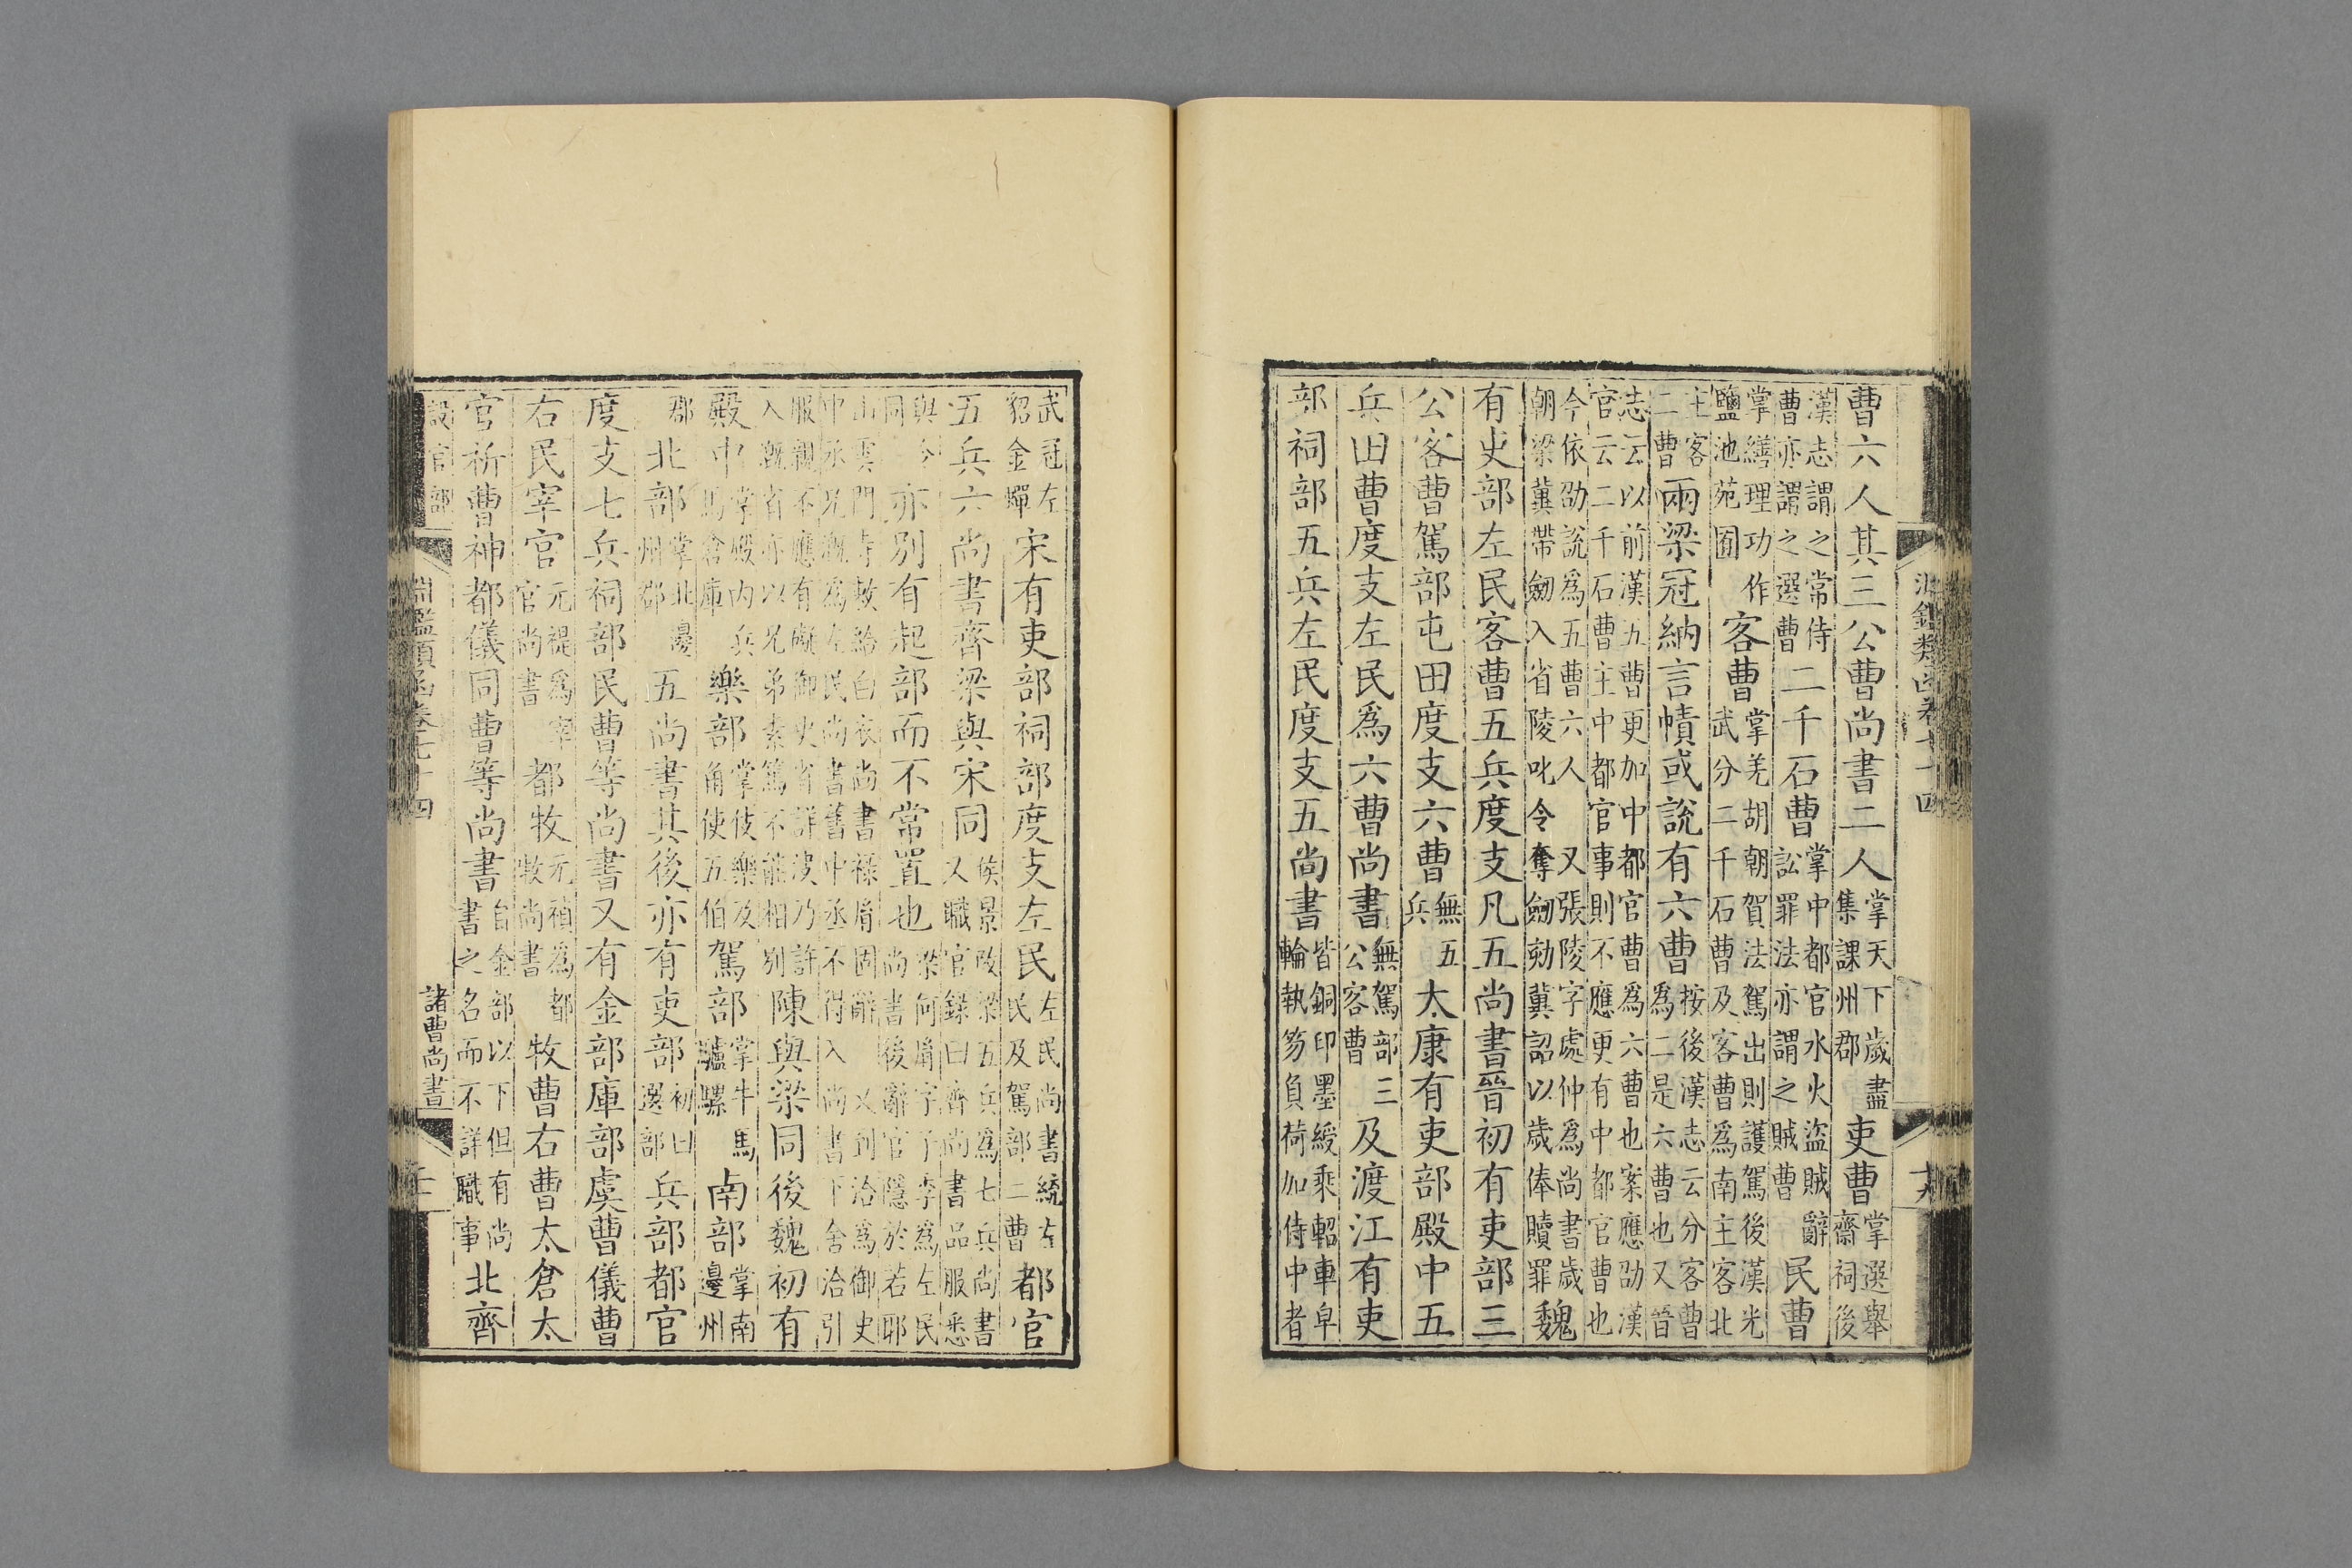 淵鑑類函卷七十四
曹六人其三公曹尚書二人掌天下歲盡集課州郡吏曹掌選舉齋祠後
漢志謂之常侍曹亦謂之選曹二千石曹掌中都官水火盜賊辭訟罪法亦謂之賊曹民曹
掌繕理功作鹽池苑囿客曹掌羌胡朝賀法駕出則護駕後漢光武分二千石曹及客曹爲南主客北
主客二曹兩梁冠納言幘或說有六曹按後漢志云分客曹爲二是六曹也又晉
志云以前漢五曹更加中都官曹爲六曹也案應劭漢官云二千石曹主中都官事則不應更有中都官曹也
今依劭說爲五曹六人 又張陵字處仲爲尚書歲朝梁冀帶劒入省陵叱令奪劒劾冀詔以歲俸贖罪魏
有吏部左民客曹五兵度支凡五尚書晉初有吏部三
公客曹駕部屯田度支六曹無五兵太康有吏部殿中五
兵田曹度支左民爲六曹尚書無駕部三公客曹及渡江有吏
部祠部五兵左民度支五尚書皆銅印墨綬乘軺車皁輪執笏負荷加侍中者
武冠左貂金蟬宋有吏部祠部度支左民左民尚書統左民及駕部二曹都官
五兵六尚書齊梁與宋同侯景改梁五兵爲七兵尚書又職官錄曰齊尚書品服悉
與今同亦別有起部而不常置也梁何胤字子季爲左民尚書後辭官隱於若耶
山雲門寺敕給白衣尚書祿胤固辭 又到洽爲御史中丞兄溉爲左民尚書舊中丞不得入尚書下舍洽引
服親不應有礙御史省詳決乃許入溉省亦以兄弟素篤不能相別陳與梁同後魏初有
殿中掌殿內兵馬倉庫樂部掌伎樂及角使五伯駕部掌牛馬驢騾南部掌南邊州
郡北部掌北邊州郡五尚書其後亦有吏部初曰選部兵部都官
度支七兵祠部民曹等尚書又有金部庫部虞曹儀曹
右民宰官元禔爲宰官尚書都牧元禎爲都牧尚書牧曹右曹太倉太
官祈曹神都儀同曹等尚書自金部以下但有尚書之名而不詳職事北齊
設官部 淵鑑類函卷七十四 諸曹尚書